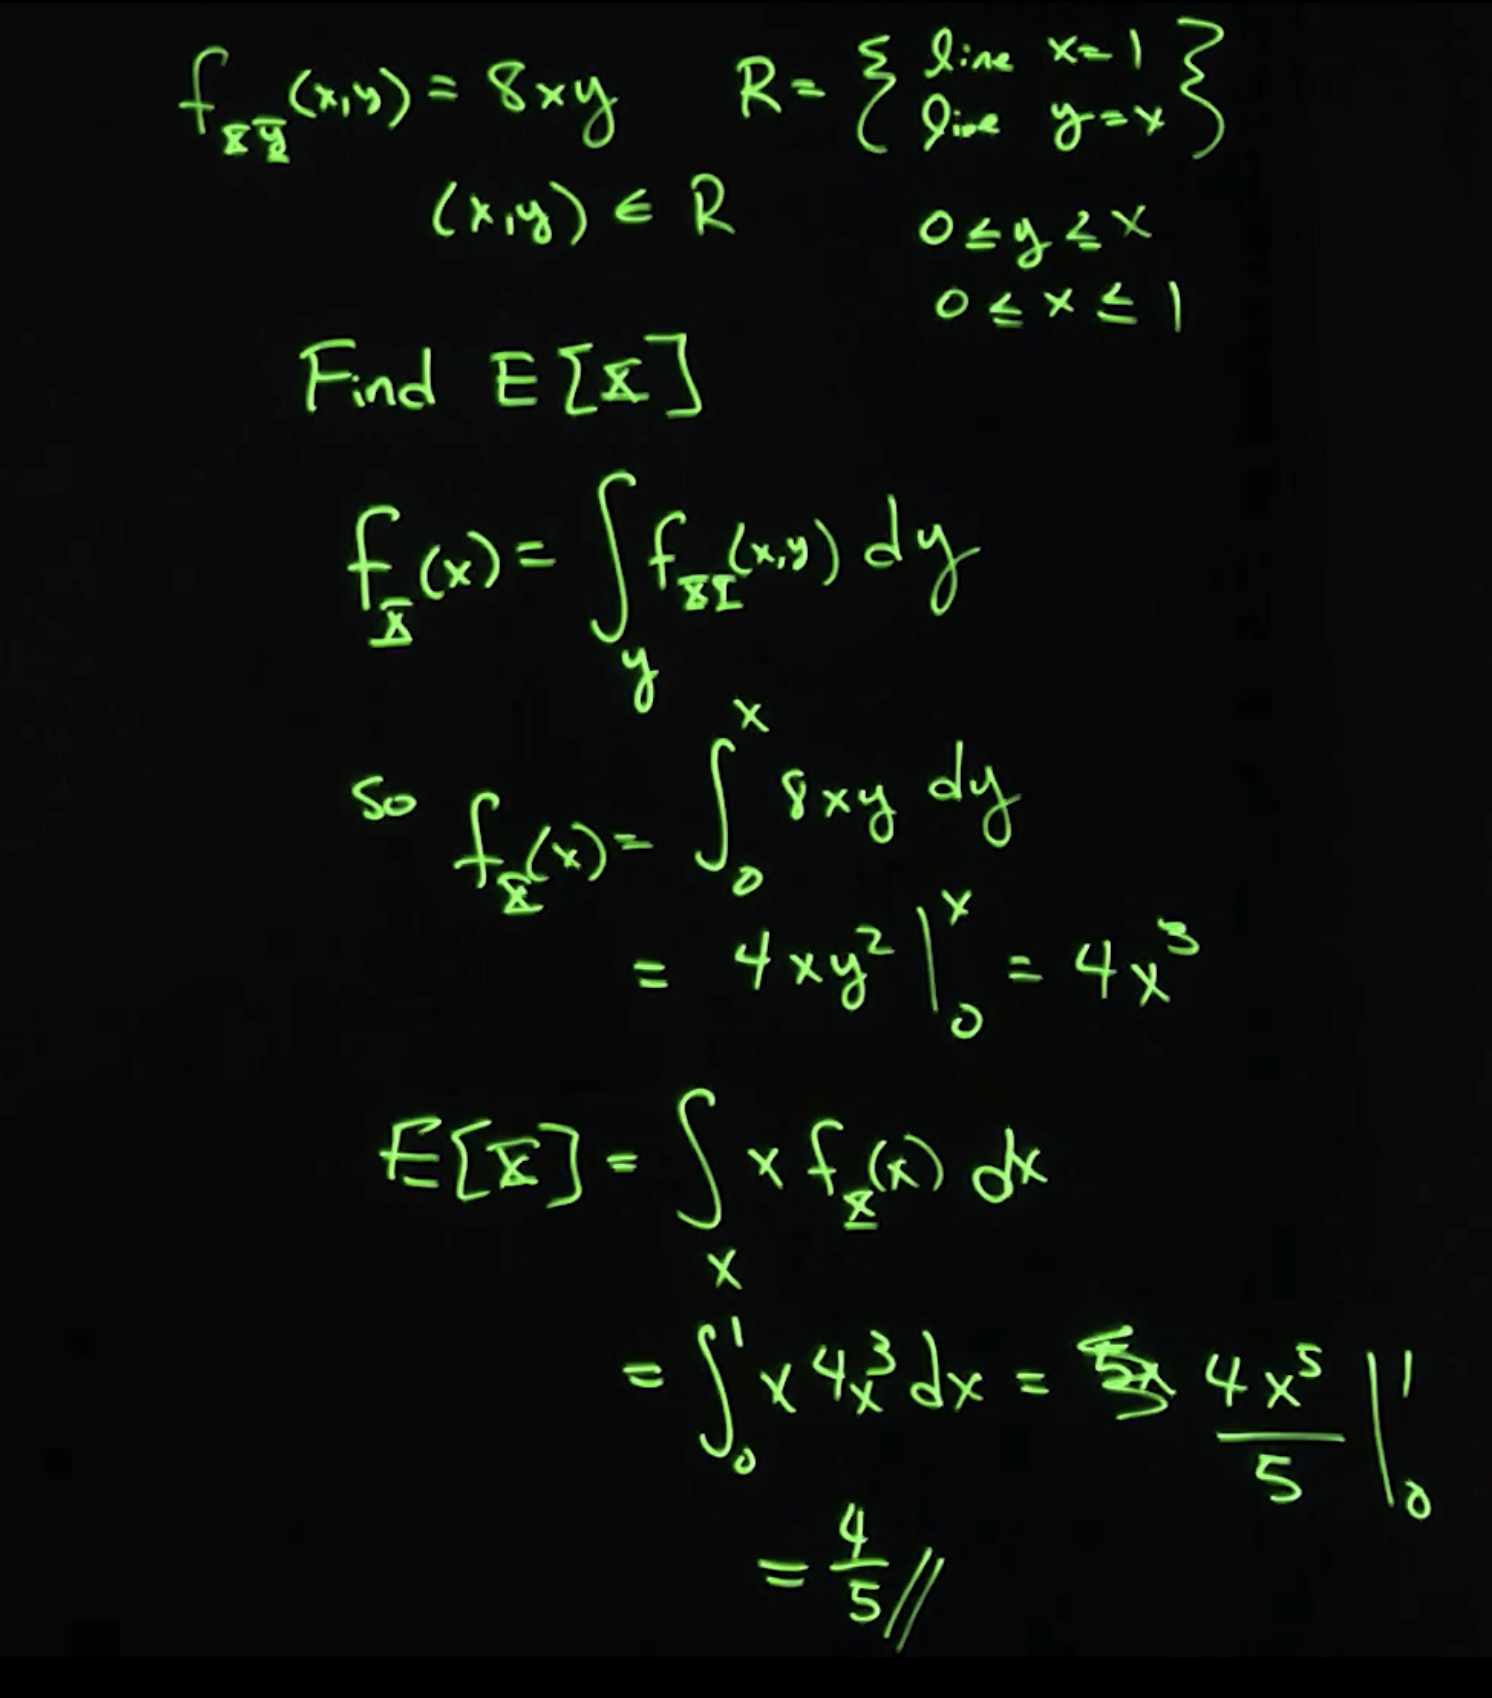 f_XY(x,y) = 8xy R = { line x=1
line y=x }
(x,y) ∈ R 0 ≤ y ≤ x
0 ≤ x ≤ 1
Find E[X]
f_X(x) = ∫_y f_XY(x,y) dy
so f_X(x) = ∫_0^x 8xy dy
= 4xy² |_0^x = 4x³
E[X] = ∫_x x f_X(x) dx
= ∫_0^1 x 4x³ dx = 4x⁵/5 |_0^1
= 4/5 //